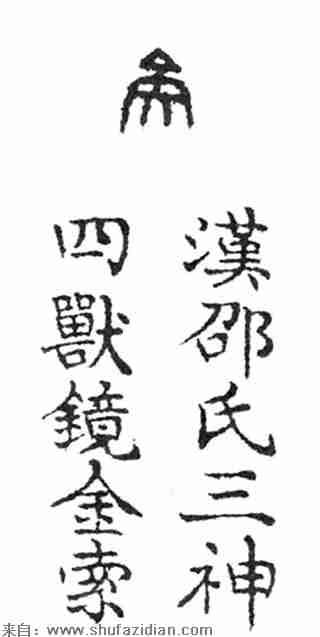 漢邵氏三神
四獸鏡金索
来自：www.shufazidian.com